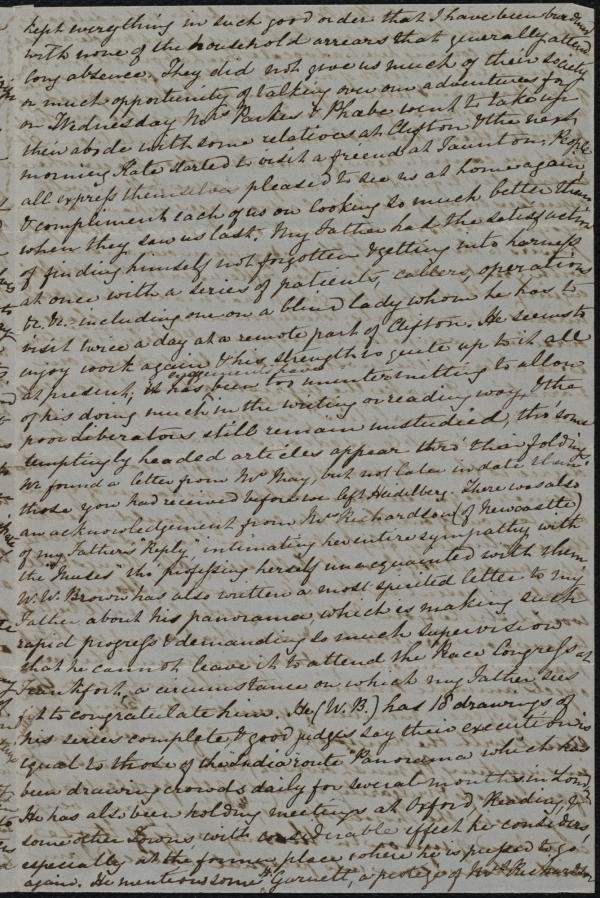 kept everything in such good order that I have been burdened
with none of the household arrears that generally attend
long absence. They did not give us much of their society
or much opportunity of talking over our adventures for
on Wednesday Mrs Parkes & Phœbe went to take up
their abode with some relatives at Clifton & the next
morning Kate started to visit a friend at Taunton. People
all express themselves pleased to see us at home again
& compliment each of us on looking so much better than
when they saw us last. My Father has the satisfaction
of finding himself not forgotten & getting into harness
at once with a series of patients, callers, operations
&c. &c. including one on a blind lady whom he has to
visit twice a day at a remote part of Clifton. He seems to
enjoy work again & his strength is quite up to it all
at present; engagements have been too unintermitting to allow
of his doing much in the writing or reading way, & the
poor Liberators still remain unstudied, tho' some
temptingly headed articles appear thro' their foldings
We found a letter from Mr May, but not later in date than
those you had received before we left Heidelberg. There was also
an acknowledgement from Mrs Richardson (of Newcastle)
of my Father's "Reply," intimating her entire sympathy with
the "Muses" tho' professing herself unacquainted with them.
W. W. Brown has also written a most spirited letter to my
Father about his panorama, which is making such
rapid progress & demanding so much supervision
that he cannot leave it to attend the Peace Congress at
Frankfort, a circumstance on which my Father sees
fit to congratulate him. He (W. B.) has 18 drawings of
his series complete, & good judges say their execution is
equal to those of the "India route" Panorama which has
been drawing crowds daily for several months in Lond.
He has also been holding meetings at Oxford, Reading, &
some other Towns, with considerable effect he considers,
especially at the former place where he is pressed to go
again. He mentions some H. Garnett, a protegé of Mrs Richardson